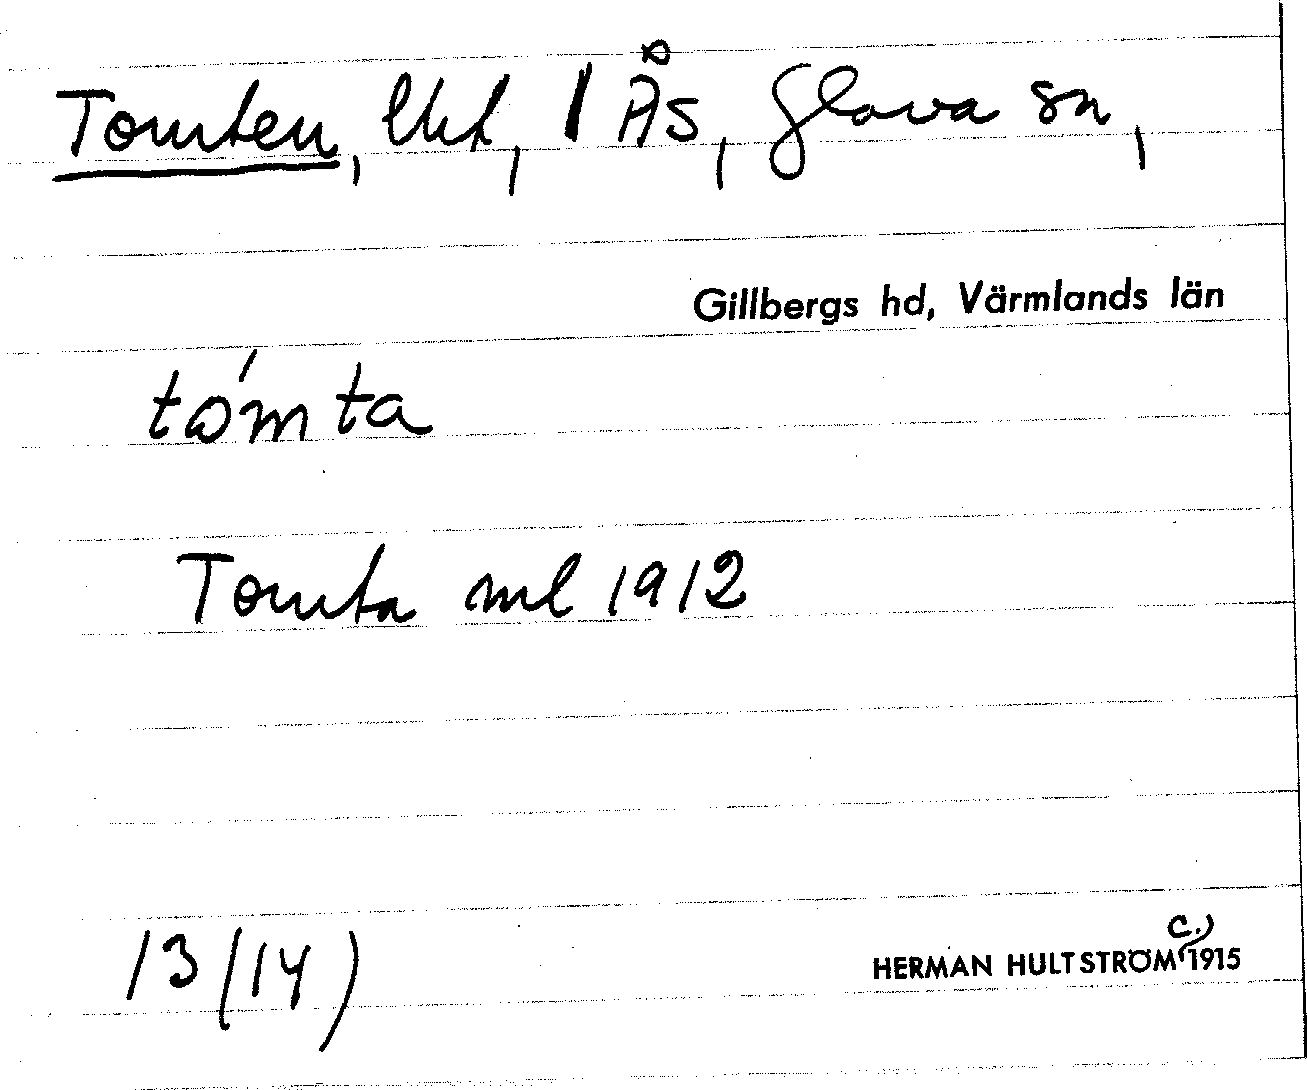 Tomten, lht, 1 Ås, Glava sn,
Gillbergs hd, Värmlands län
tómta
Tomta ml 1912
13 (14)
HERMAN HULTSTRÖM c. 1915